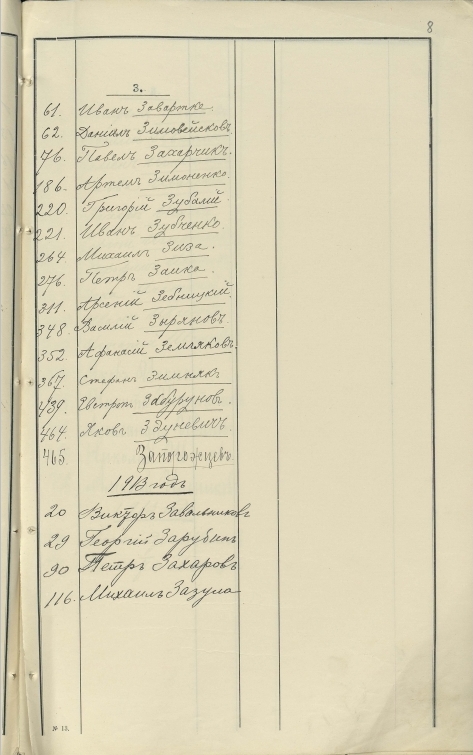 8
З.
61. Иванъ Завартке.
62. Даніилъ Зимовейсковъ
76. Павелъ Захарчикъ.
186. Артемъ Зимоненко.
220. Григорій Зубалій.
221. Иванъ Зубченко.
264 Михаилъ Зиза.
276. Петръ Заика.
311. Арсеній Зебницкій.
348. Василій Зыряновъ.
352. Афанасій Земляковъ.
367. Стефанъ Зимнякъ
439. Забуруновъ.
464. Яковъ Здуневичъ.
465. Запорожцевъ.
1913 годъ
20 Викторъ Завальниковъ
29 Георгій Зарубинъ
90 Петръ Захаровъ
116. Михаилъ Зазуля
№ 13.